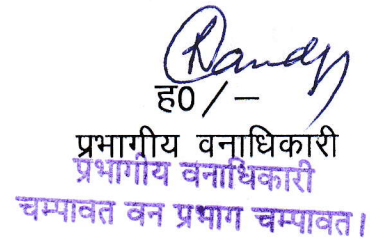 ह0/—
प्रभागीय वनाधिकारी
प्रभागीय वनाधिकारी
चम्पावत वन प्रभाग चम्पावत।